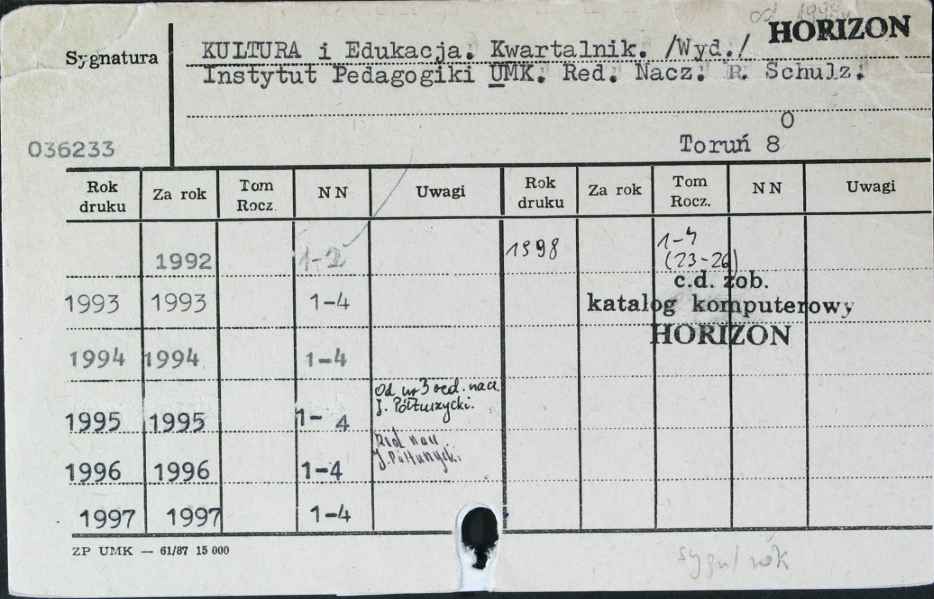 od 1999
HORIZON
Sygnatura
KULTURA i Edukacja. Kwartalnik. /Wyd./
Instytut Pedagogiki UMK. Red. Nacz. R. Schulz.
036233
Toruń 8
O
Rok druku Za rok Tom Rocz. NN Uwagi Rok druku Za rok Tom Rocz. NN Uwagi
1992 1-2 1998 1-4
(23-26)
c.d. zob.
1993 1993 1-4 katalog komputerowy
HORIZON
1994 1994 1-4
Od nr 3 red. nacz
J. Półturzycki.
1995 1995 1-4
Red nacz
J. Półturzycki
1996 1996 1-4
1997 1997 1-4
ZP UMK — 61/87 15 000
sygn/rok